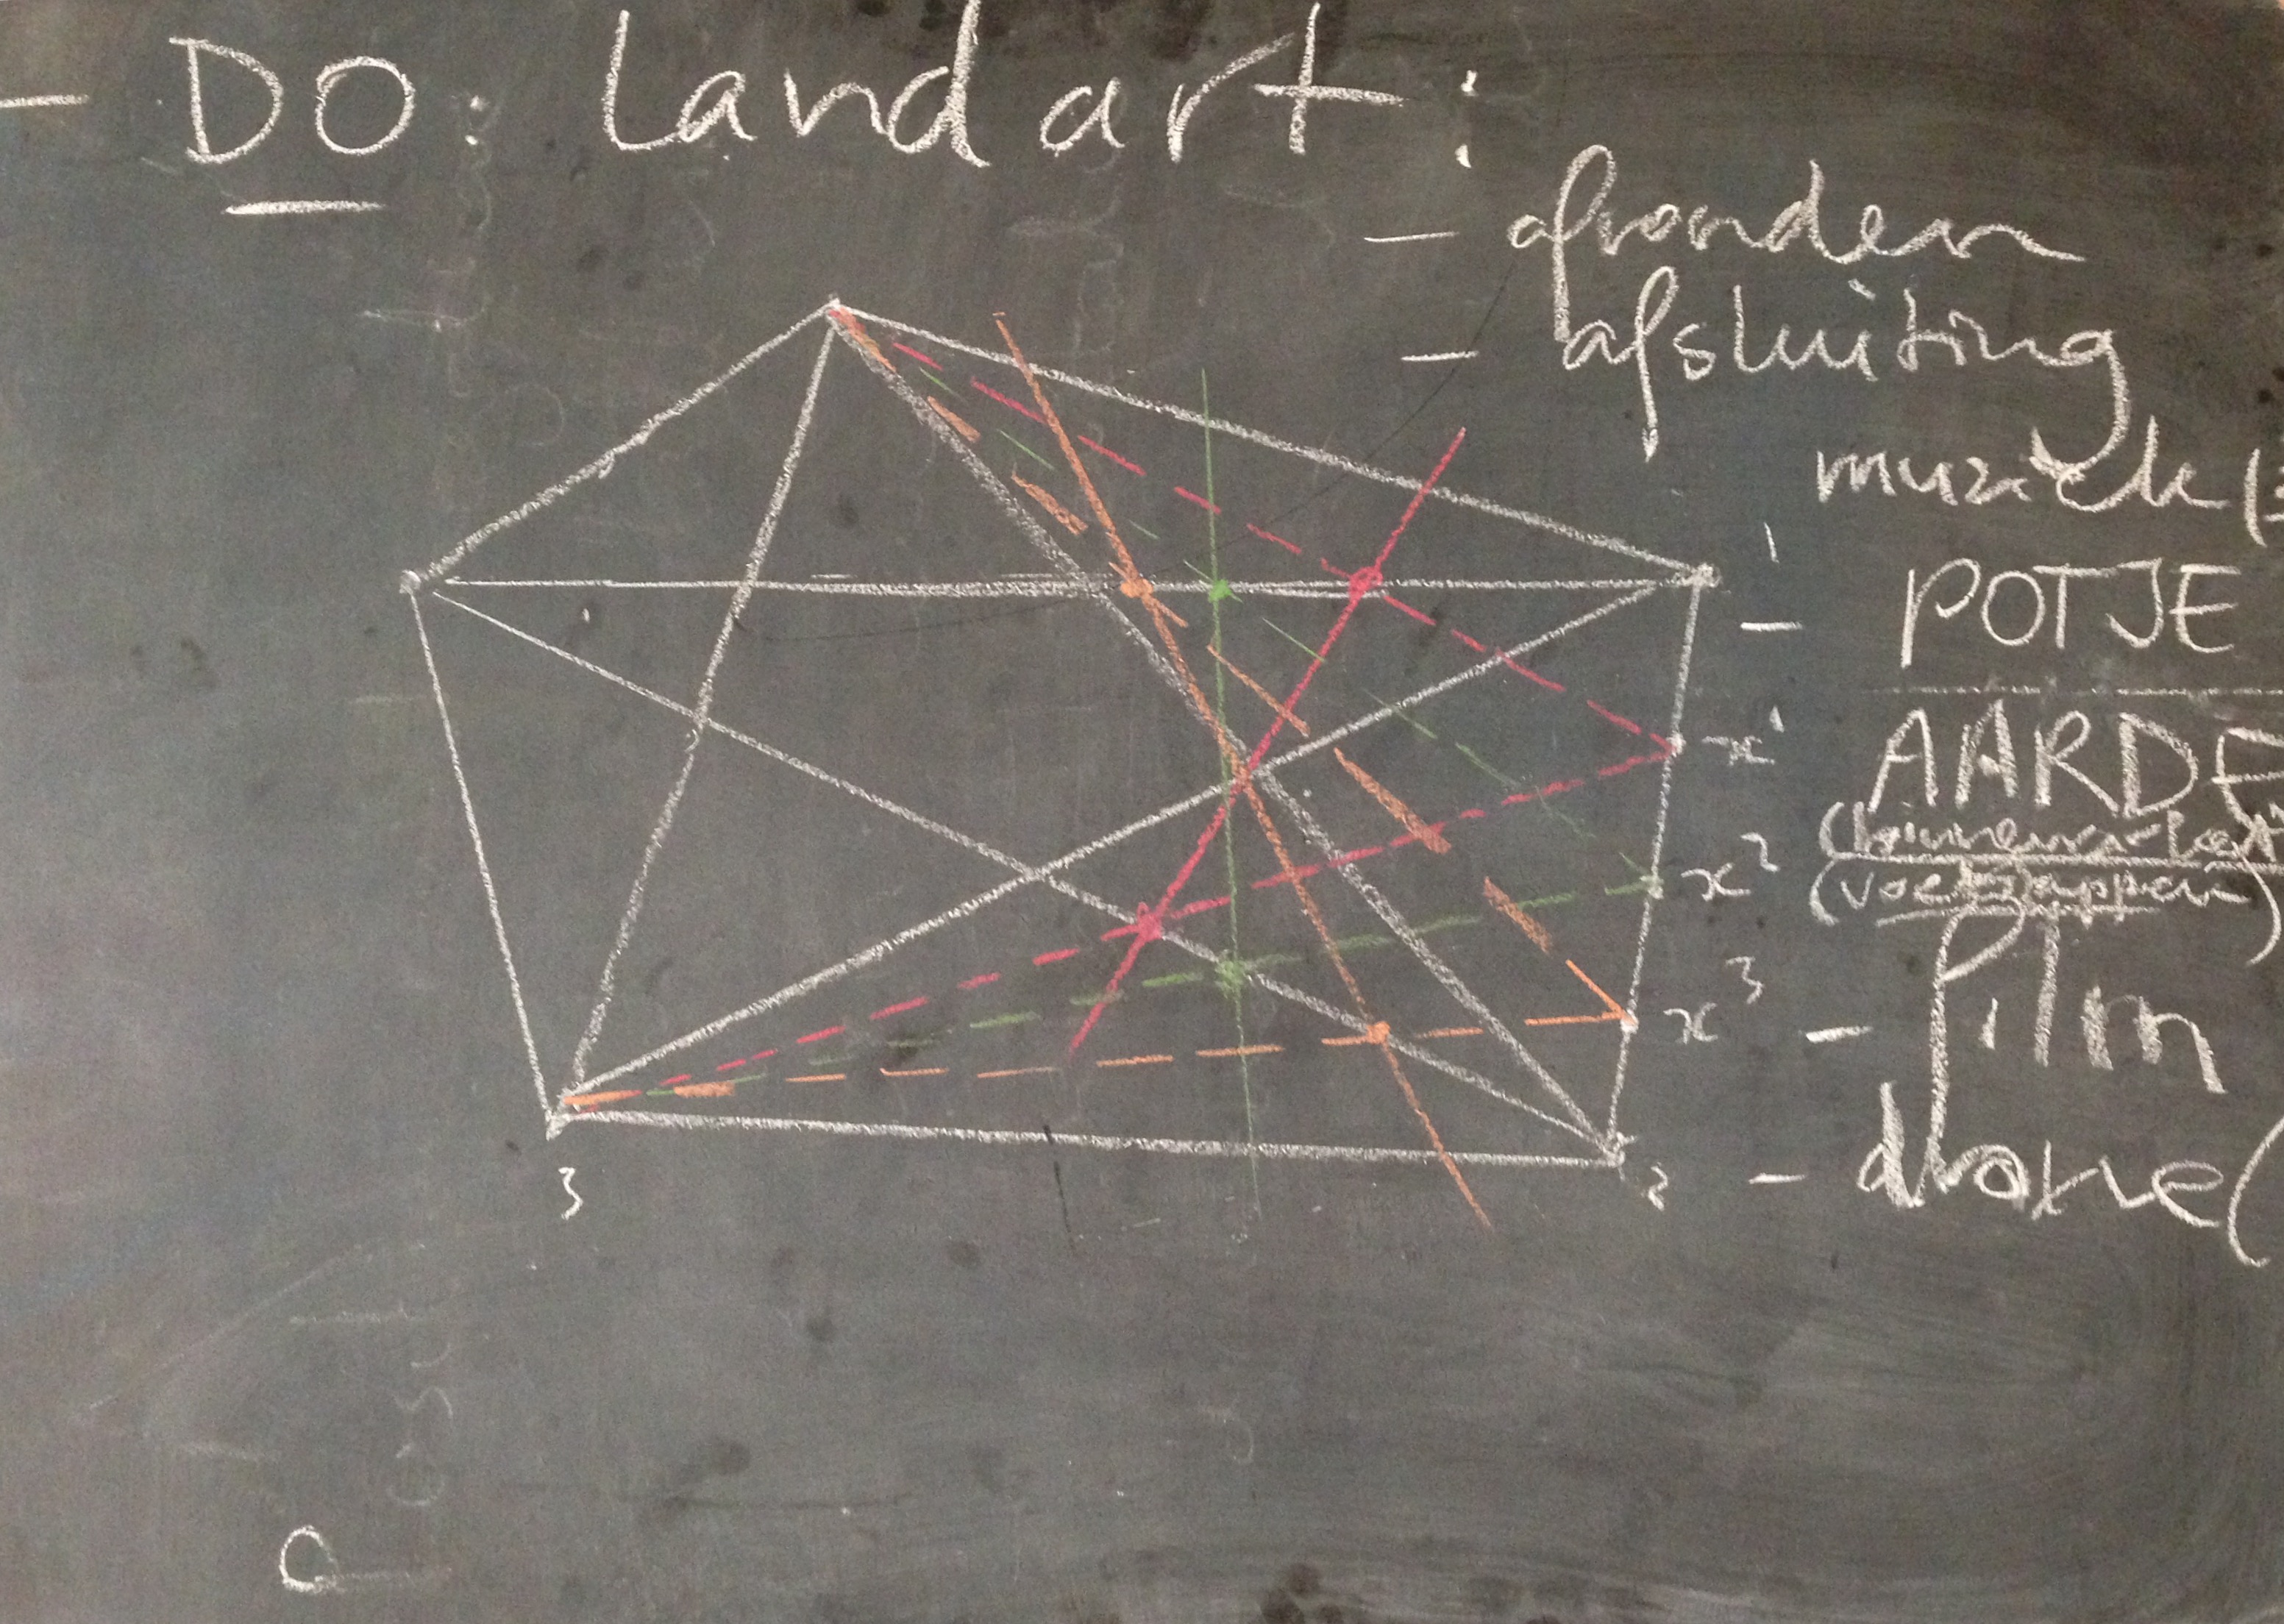 - DO: Land art:
- afronden
- afsluiting
muziek (
1
- POTJE
x¹
AARDE
x²
(voetstappen)
x³
- film
- drone (
2
3